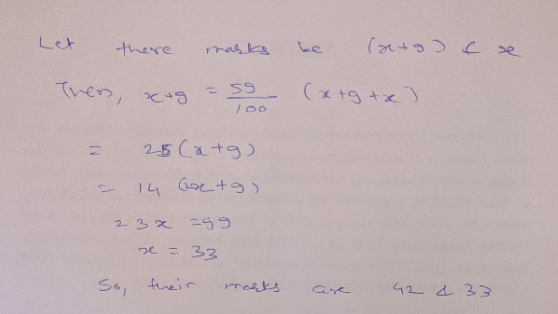 Let there marks be (x+9) & x
Then, x+9 = 59/100 (x+9+x)
= 25(x+9)
= 14 (2x+9)
= 3x = 99
x = 33
So, their marks are 42 & 33